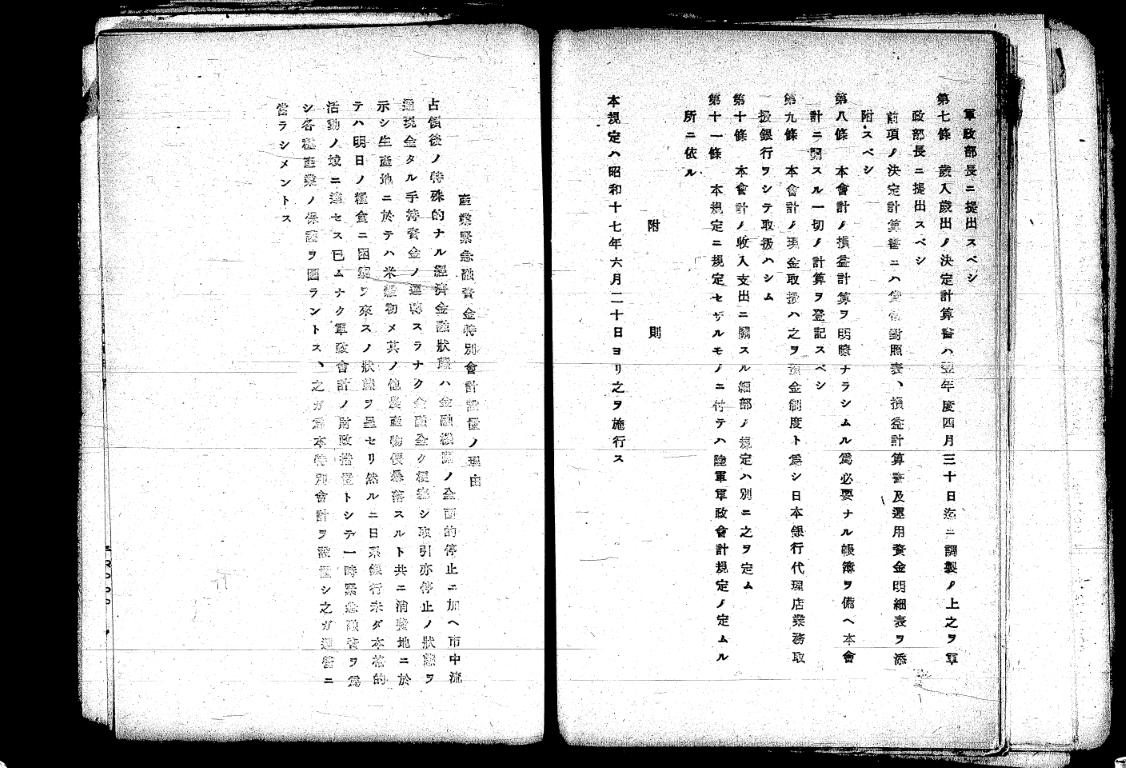 軍政部長ニ提出スベシ
第七條　歲入歲出ノ決定計算書ハ翌年度四月三十日迄ニ調製ノ上之ヲ軍
政部長ニ提出スベシ
前項ノ決定計算書ニハ貸借對照表、損益計算書及運用資金明細表ヲ添
附スベシ
第八條　本會計ノ損益計算ヲ明瞭ナラシムル爲必要ナル帳簿ヲ備ヘ本會
計ニ關スル一切ノ計算ヲ登記スベシ
第九條　本會計ノ現金取扱ハ之ヲ預金制度ト爲シ日本銀行代理店業務取
扱銀行ヲシテ取扱ハシム
第十條　本會計ノ收入支出ニ關スル細部ノ規定ハ別ニ之ヲ定ム
第十一條　本規定ニ規定セザルモノニ付テハ陸軍軍政會計規定ノ定ムル
所ニ依ル
附　則
本規定ハ昭和十七年六月二十日ヨリ之ヲ施行ス
產業緊急融資金特別會計設置ノ理由
占領後ノ特殊的ナル經濟金融狀態ハ金融機關ノ全面的停止ニ加ヘ市中流
通現金タル手持資金ノ運轉スラナク金融全ク梗塞シ取引亦停止ノ狀態ヲ
示シ生產地ニ於テハ米穀初メ其ノ他農產物價暴落スルト共ニ消費地ニ於
テハ明日ノ糧食ニ困窮ヲ來スノ狀態ヲ呈セリ然ルニ日系銀行未ダ本格的
活動ノ域ニ達セス已ムナク軍政會計ノ財政措置トシテ一時緊急融資ヲ爲
シ各種產業ノ保護ヲ圖ラントス、之ガ爲本特別會計ヲ設置シ之ガ運營ニ
當ラシメントス